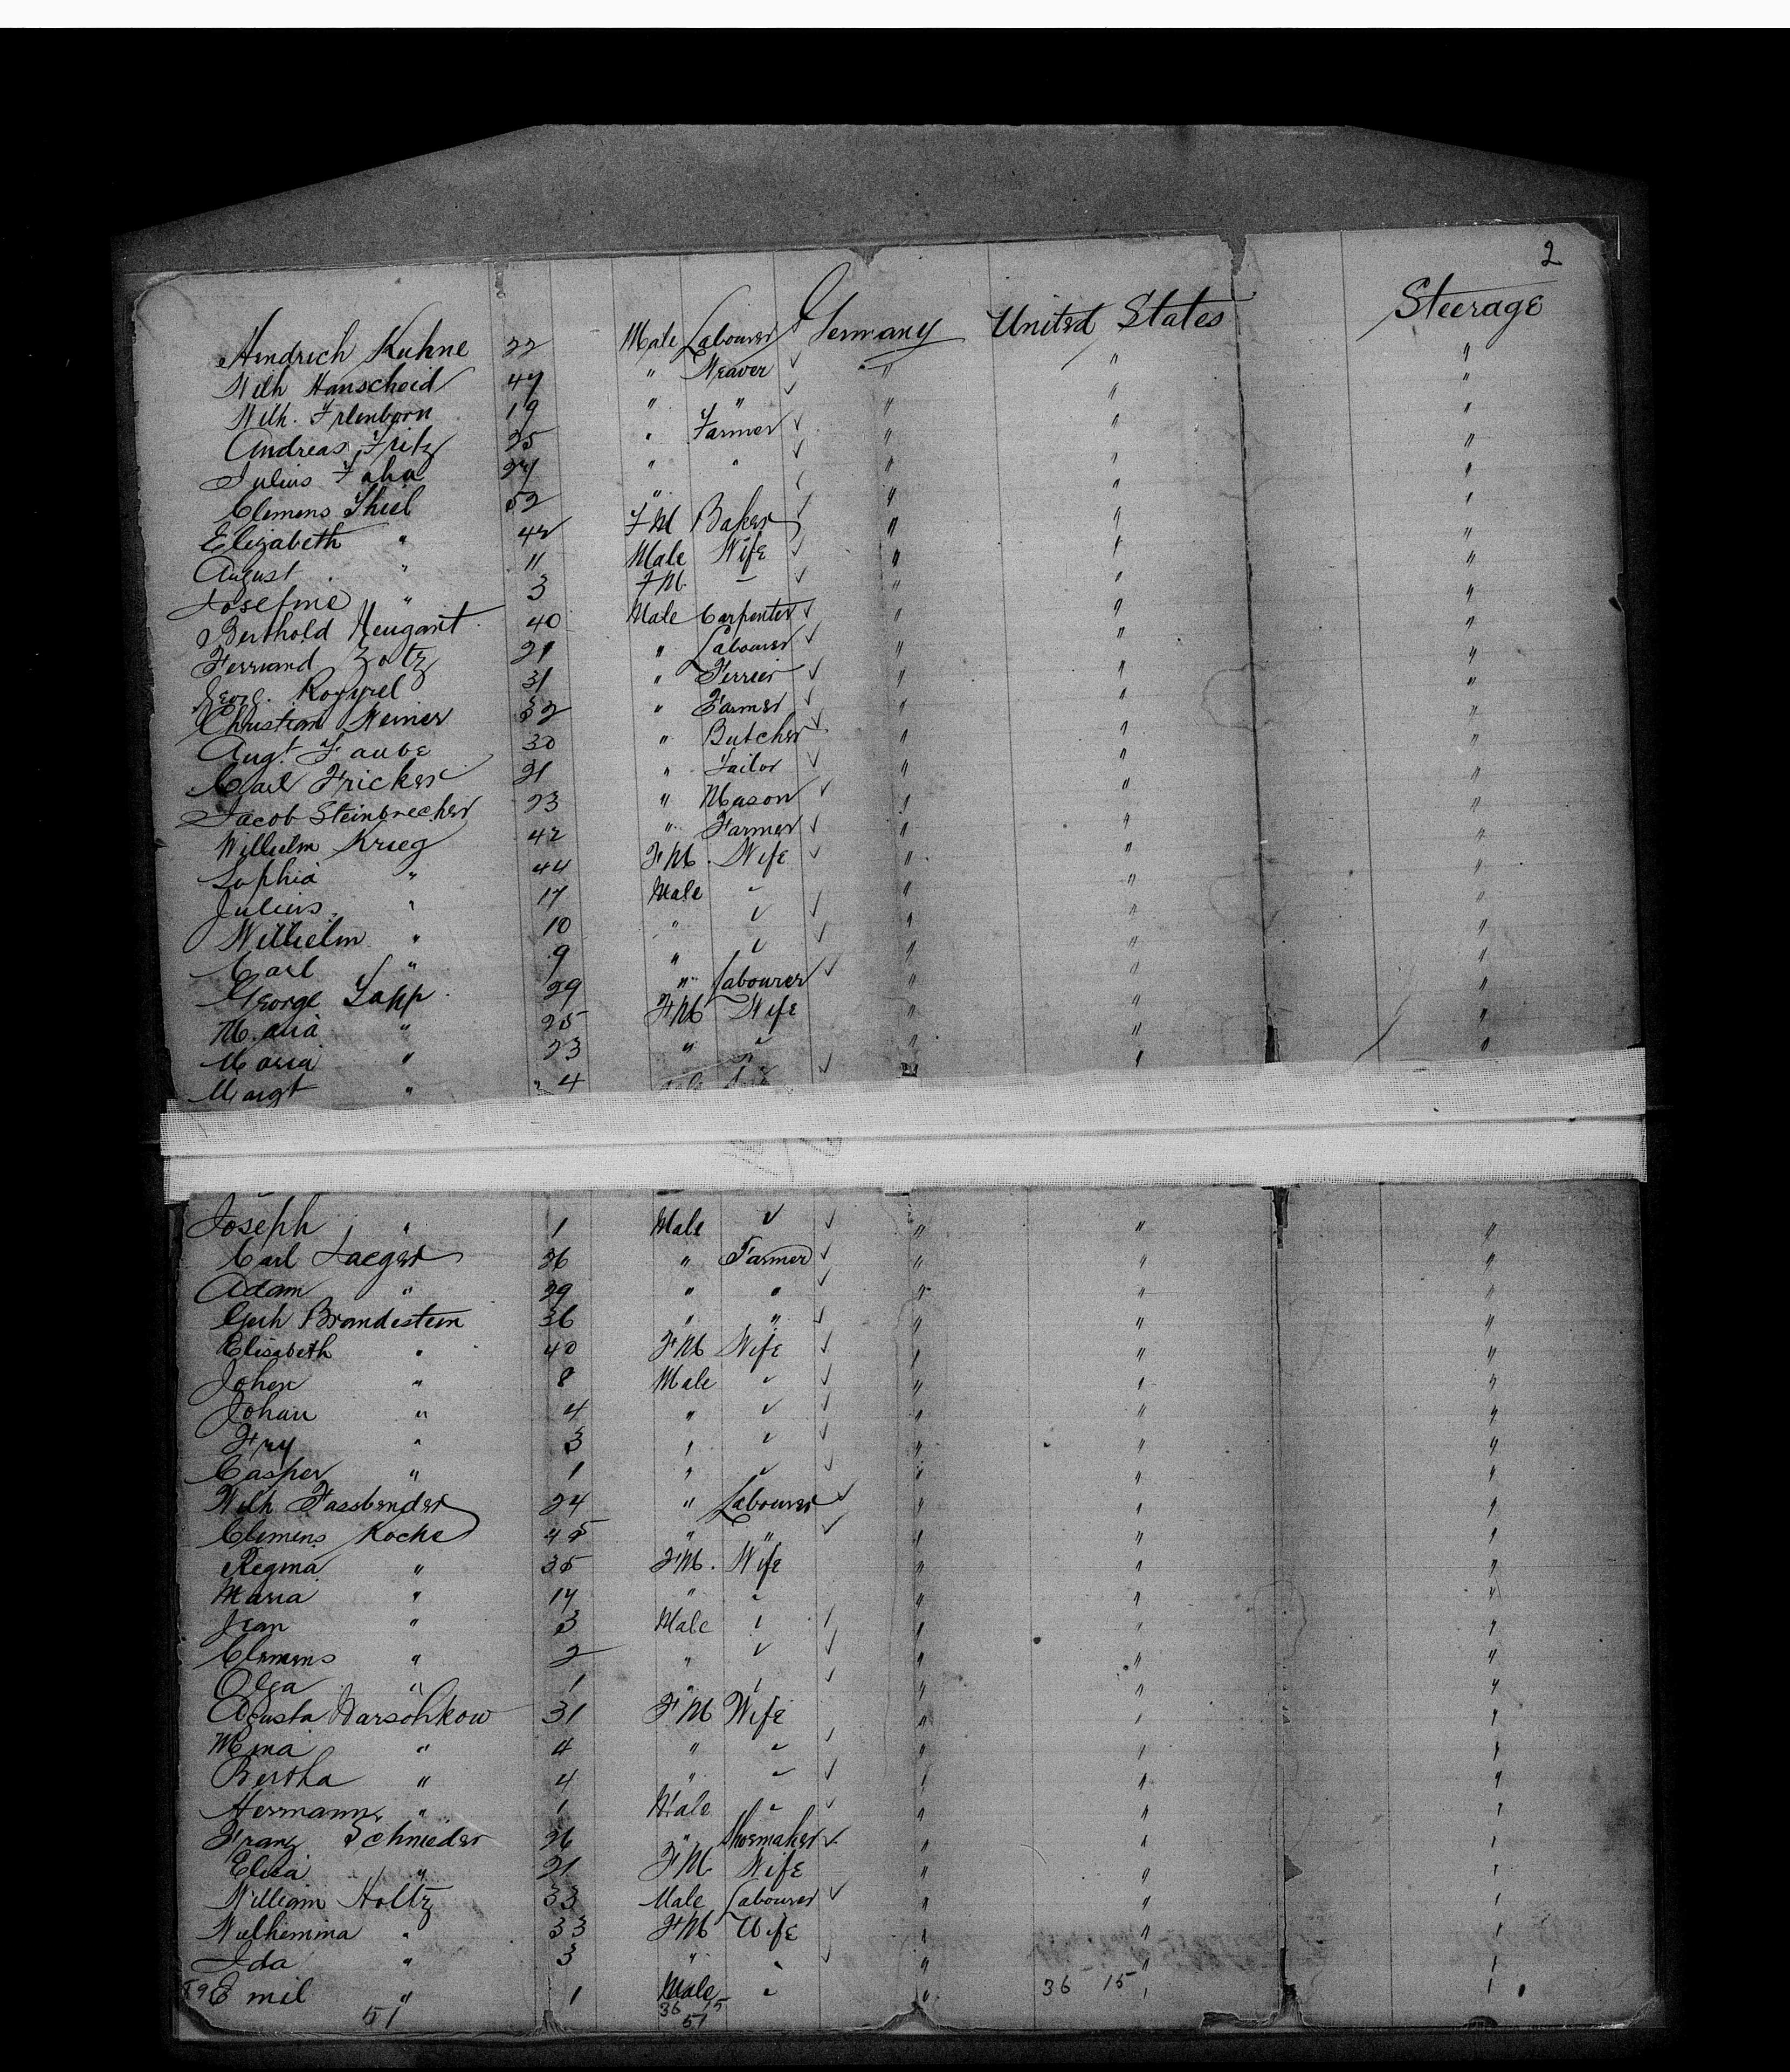 2
Hendrich Kuhne 22 Male Labourer Germany United States Steerage
Wilh Hanscheid 47 " Weaver " " "
Wilh. Irlenborn 19 " " " " "
Andreas Fritz 25 " Farmer " " "
Julius Faha 27 " " " " "
Clemens Thiel 52 " Baker " " "
Elizabeth " 42 FM Wife " " "
August " 11 Male " " "
Josefine " 3 FM " " "
Berthold Neugart 40 Male Carpenter " " "
Ferrnand Zoltz 21 " Labourer " " "
Georg. 31 " Ferrier " " "
Christian Weiner 32 " Farmer " " "
Augt. Taube 30 " Butcher " " "
Carl Fricker 21 " Tailor " " "
Jacob Steinbrecher 23 " Mason " " "
Wilhelm Krieg 42 " Farmer " " "
Sophia " 44 FM. Wife " " "
Julius " 17 Male " " "
Wilhelm " 10 " " " "
Carl " 9 " " " "
George Lapp 29 " Labourer " " "
Maria " 25 FM Wife " " "
Maria " 23 " " " "
Margt " 4
Joseph " 1 Male " " "
Carl Jaeger 26 " Farmer " " "
Adam " 29 " " " " "
Gerh Brandestein 36 " " " " "
Elisabeth " 40 FM Wife " " "
Johen " 8 Male " " "
Johan " 4 " " " "
Fry " 3 " " " "
Casper " 1 " " " "
Wilh Fassbender 24 " Labourer " " "
Clemens Koche 45 " " " " "
Regina " 35 FM. Wife " " "
Maria " 17 " " " "
Jean " 3 Male " " "
Clemens " 2 " " " "
Olga " 1 " " " "
Agusta Harschkow 31 FM Wife " " "
Mina " 4 " " " "
Bertha " 4 " " " "
Hermann " 1 Male " " "
Franz Schnieder 26 " Shoemaker " " "
Elisa " 21 FM Wife " " "
William Holtz 33 Male Labourer " " "
Wilhemina " 33 FM Wife " " "
Ida " 3 " " " "
Emil " 1 Male " 36 15 " "
51 36 15
51